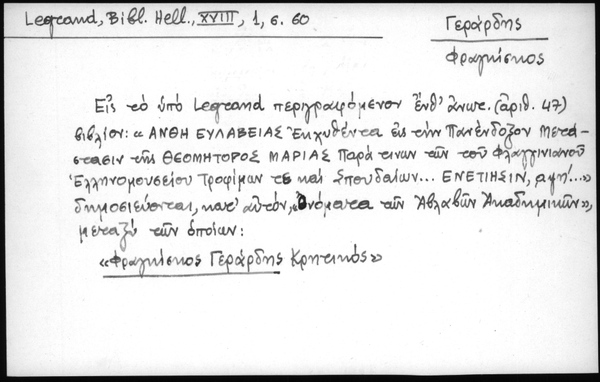 Legrand, Bibl. Hell., XVIII, 1, σ. 60
Γεράρδης
Φραγκίσκος
Εἰς τὸ ὑπὸ Legrand περιγραφόμενον ἔνθ' ἄνωτ. (ἀριθ. 47)
βιβλίον: «ΑΝΘΗ ΕΥΛΑΒΕΙΑΣ Ἐκχυθέντα εἰς τὴν Πανένδοξον Μετά-
στασιν τῆς ΘΕΟΜΗΤΟΡΟΣ ΜΑΡΙΑΣ Παρά τινων τῶν τοῦ Φλαγγινιανοῦ
Ἑλληνομουσείου Τροφίμων τε καὶ Σπουδαίων... ΕΝΕΤΙΗΣΙΝ, αψη'...»
δημοσιεύονται, κατ' αὐτόν, «Ὀνόματα τῶν Ἀβλαβῶν Ἀκαδημικῶν»,
μεταξὺ τῶν ὁποίων:
«Φραγκίσκος Γεράρδης Κρητικός»